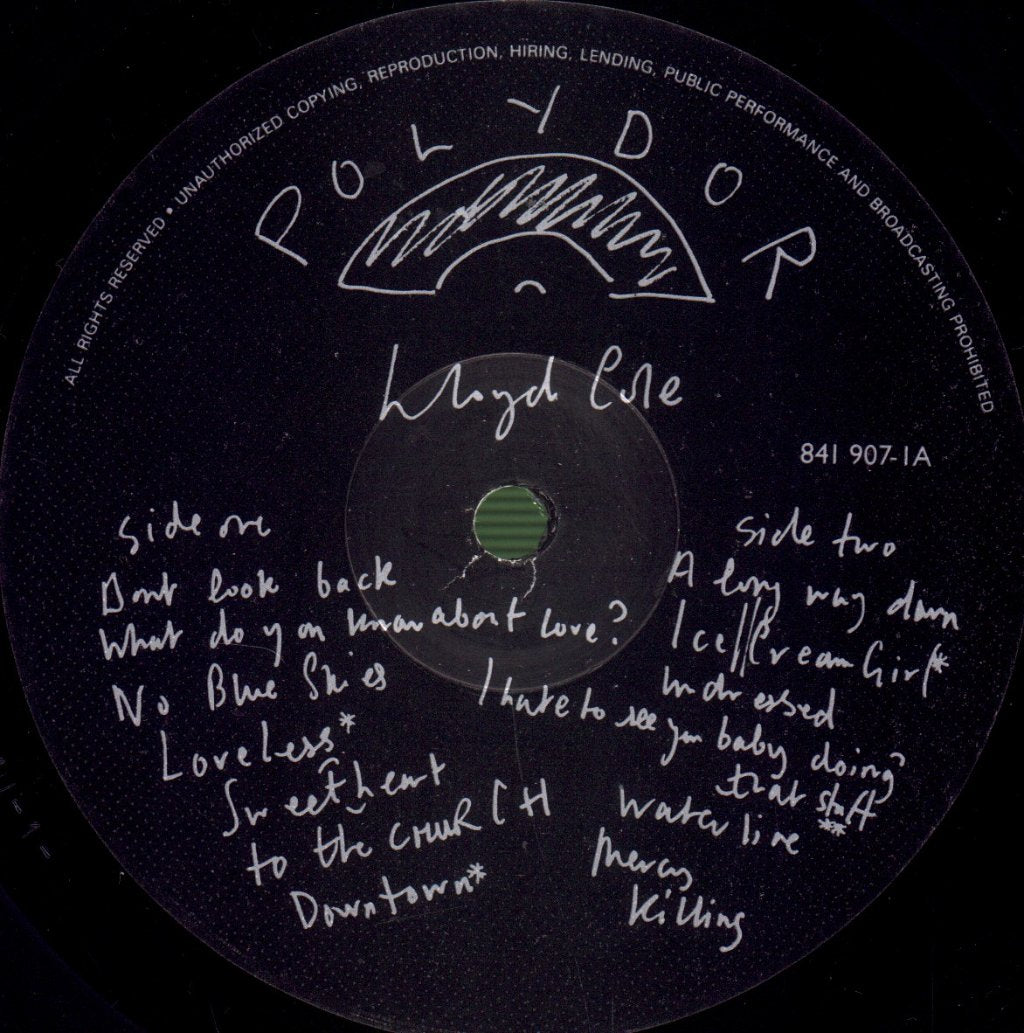 ALL RIGHTS RESERVED • UNAUTHORIZED COPYING, REPRODUCTION, HIRING, LENDING, PUBLIC PERFORMANCE AND BROADCASTING PROHIBITED
POLYDOR
Lloyd Cole
841 907-1A
Side one
Dont look back
What do you know about love?
No Blue Skies
Loveless*
Sweetheart
to the CHURCH
Downtown*
Side two
A long way down
Ice//Cream Girl*
Undressed
I hate to see you baby doing
that stuff
Waterline**
Mercy
Killing